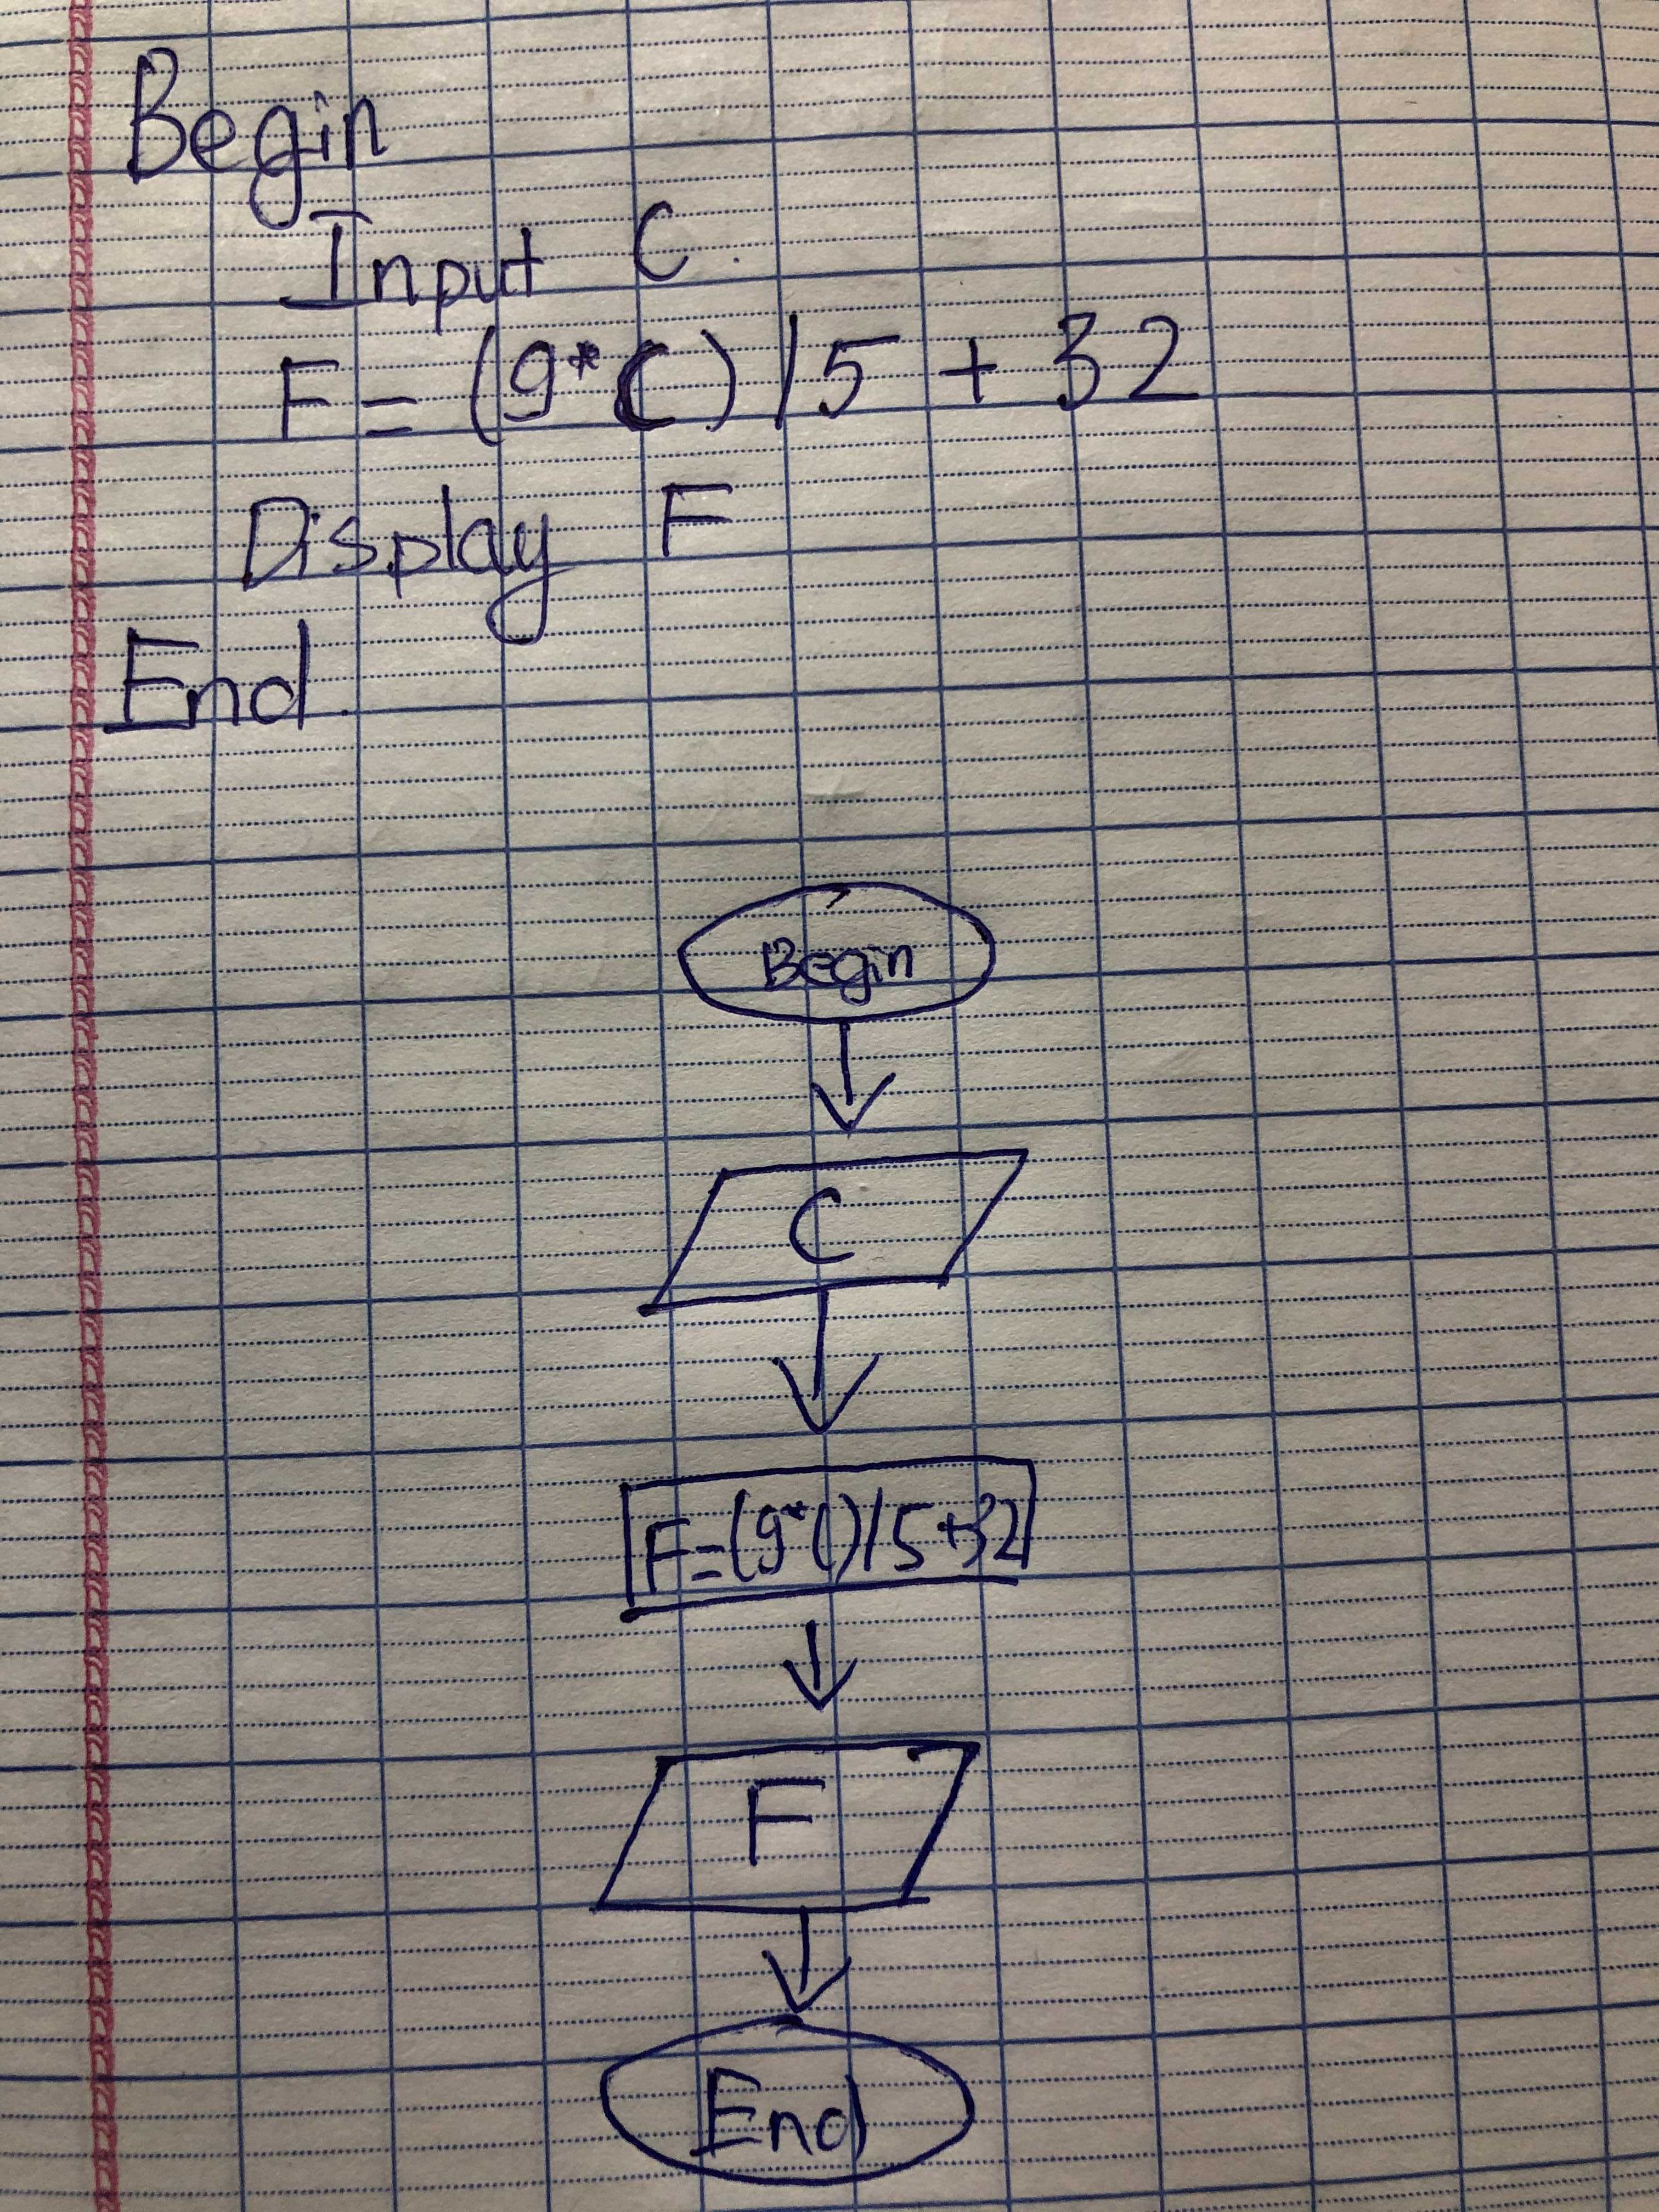 Begin
Input C.
F = (9*C)/5 + 32
Display F
End.
Begin
C
F=(9*C)/5+32
F
End